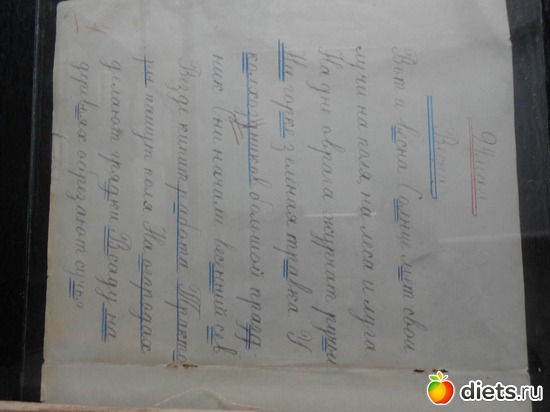 9 мая
Весна
Вот и весна Солнце льёт свои
лучи на поля, на леса и луга
На дне оврага журчат ручьи
На горке зелёная травка У
колхозников большой празд-
ник (ни начали весенний сев
Везде кипит работа Тракто-
ры пашут поля На огородах
делают грядки В саду на
деревьях обрезают сучья
4
diets.ru